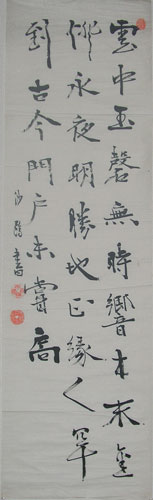 雲中玉磬無時響木末金
燈永夜明勝地正緣人罕
到古今門戶未嘗扃